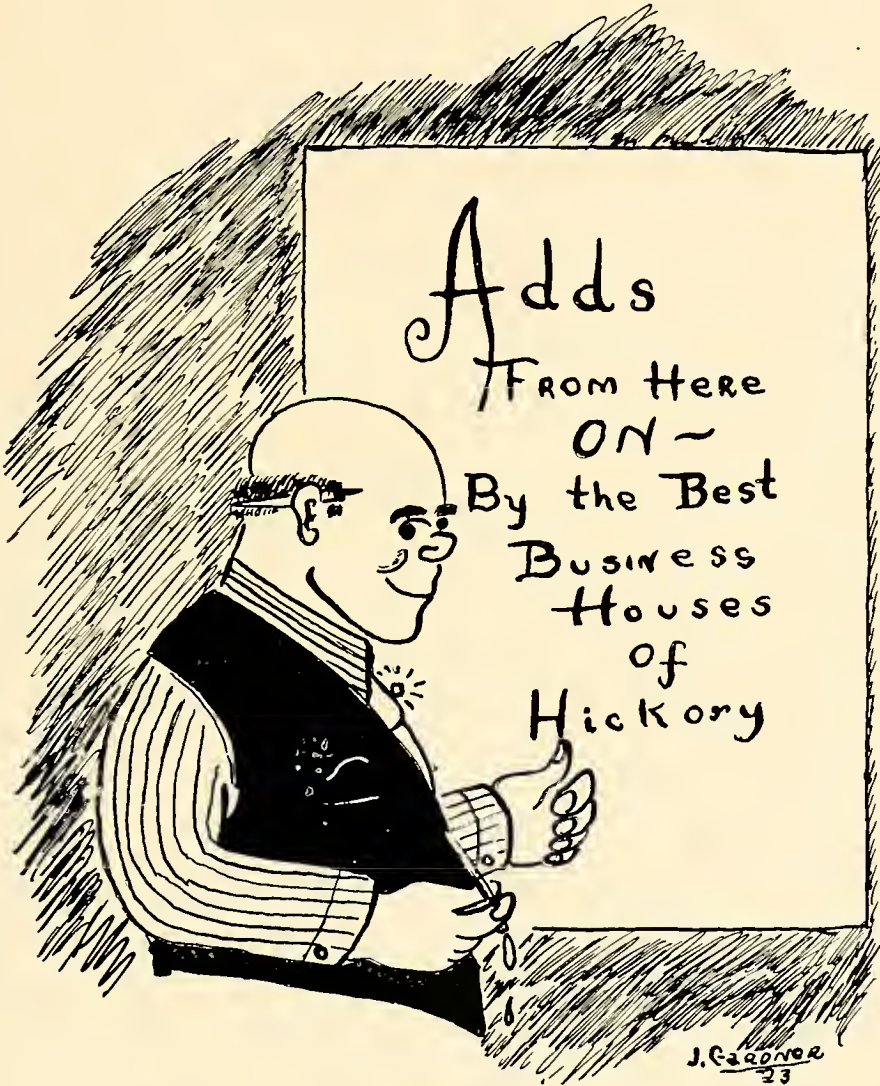 Adds
From Here
ON ~
By the Best
Business
Houses
of
Hickory
J. GARDNER
23